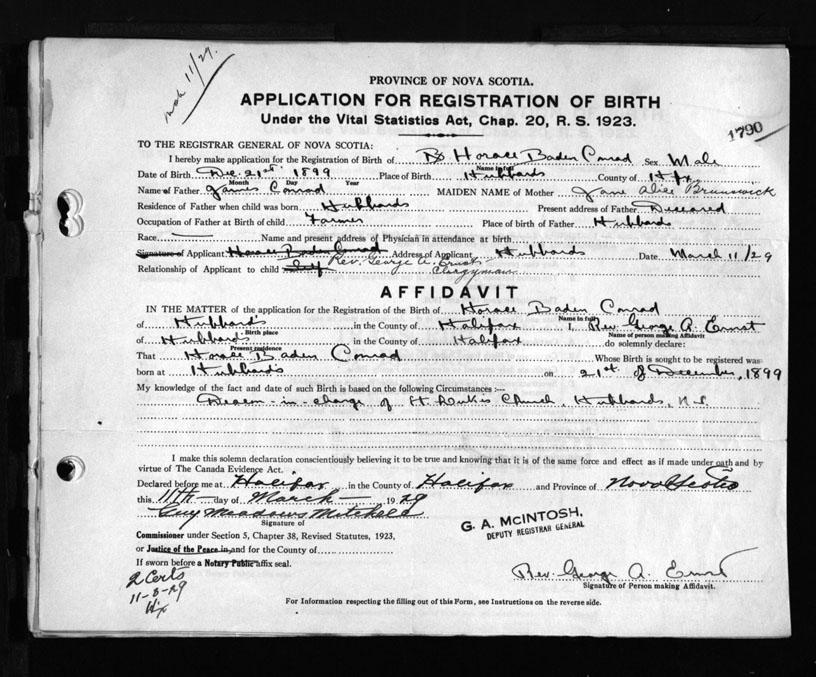 Mch 11/29.
PROVINCE OF NOVA SCOTIA.
APPLICATION FOR REGISTRATION OF BIRTH
Under the Vital Statistics Act, Chap. 20, R. S. 1923.
1790
TO THE REGISTRAR GENERAL OF NOVA SCOTIA:
I hereby make application for the Registration of Birth of Horace Baden Conrad Sex Male
Name in full
Date of Birth Dec. 21st 1899 Place of Birth Hubbards County of Hfx
Month Day Year
Name of Father James Conrad MAIDEN NAME of Mother Jane Alice Brunswick
Residence of Father when child was born Hubbards Present address of Father Deceased
Occupation of Father at Birth of child Farmer Place of birth of Father Hubbards
Race Name and present address of Physician in attendance at birth
Signature of Applicant Horace Baden Conrad Address of Applicant Hubbards Date March 11/29
Rev. George A. Ernst
Relationship of Applicant to child Self Clergyman
AFFIDAVIT
IN THE MATTER of the application for the Registration of the Birth of Horace Baden Conrad
Name in full
of Hubbards in the County of Halifax I, Rev George A. Ernst
Birth place Name of person making Affidavit
of Hubbards in the County of Halifax do solemnly declare:
Present residence
That Horace Baden Conrad Whose Birth is sought to be registered was
born at Hubbards on 21st of December, 1899
My knowledge of the fact and date of such Birth is based on the following Circumstances :—
Deacon-in-charge of St. Luke's Church, Hubbards, N.S.
I make this solemn declaration conscientiously believing it to be true and knowing that it is of the same force and effect as if made under oath and by
virtue of The Canada Evidence Act.
Declared before me at Halifax in the County of Halifax and Province of Nova Scotia
this 11th day of March 1929
Guy Meadows Mitchell
Signature of
G. A. McINTOSH,
DEPUTY REGISTRAR GENERAL
Commissioner under Section 5, Chapter 38, Revised Statutes, 1923,
or Justice of the Peace in and for the County of
If sworn before a Notary Public affix seal.
Rev. George A. Ernst
Signature of Person making Affidavit.
2 Certs
11-3-29
For Information respecting the filling out of this Form, see Instructions on the reverse side.